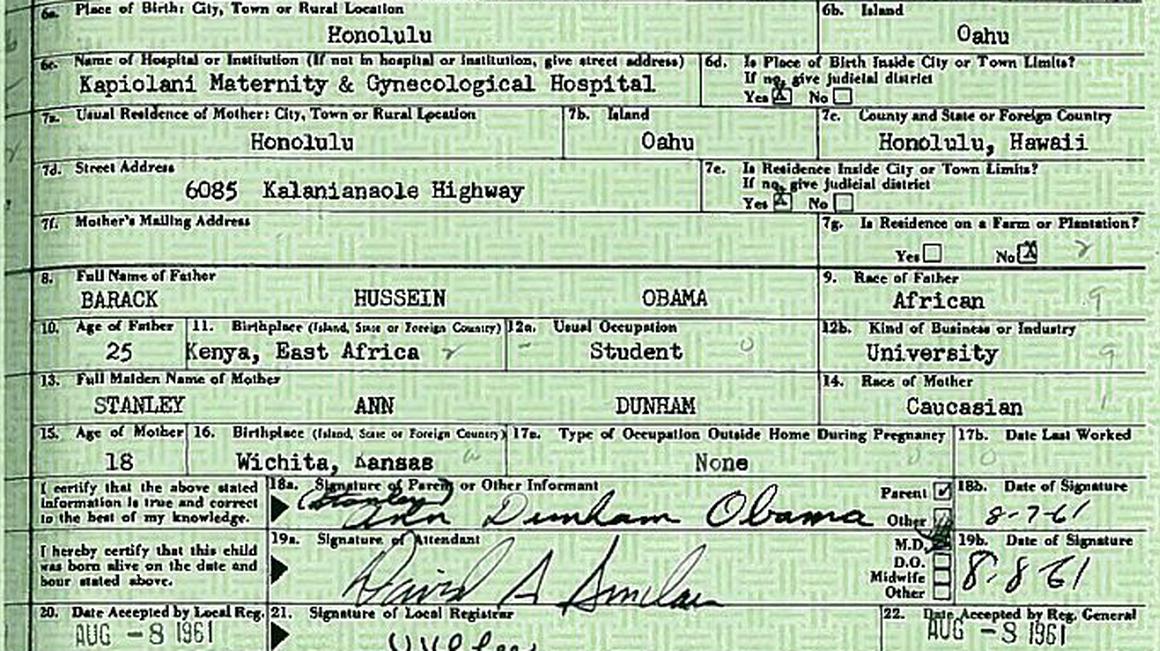 6a. Place of Birth: City, Town or Rural Location 6b. Island
Honolulu Oahu
6c. Name of Hospital or Institution (If not in hospital or institution, give street address) 6d. Is Place of Birth Inside City or Town Limits?
If no, give judicial district
Kapiolani Maternity & Gynecological Hospital Yes X No
7a. Usual Residence of Mother: City, Town or Rural Location 7b. Island 7c. County and State or Foreign Country
Honolulu Oahu Honolulu, Hawaii
7d. Street Address 7e. Is Residence Inside City or Town Limits?
If no, give judicial district
6085 Kalanianaole Highway Yes X No
7f. Mother's Mailing Address 7g. Is Residence on a Farm or Plantation?
Yes No X
8. Full Name of Father 9. Race of Father
BARACK HUSSEIN OBAMA African 9
10. Age of Father 11. Birthplace (Island, State or Foreign Country) 12a. Usual Occupation 12b. Kind of Business or Industry
25 Kenya, East Africa Student 0 University 9
13. Full Maiden Name of Mother 14. Race of Mother
STANLEY ANN DUNHAM Caucasian 1
15. Age of Mother 16. Birthplace (Island, State or Foreign Country) 17a. Type of Occupation Outside Home During Pregnancy 17b. Date Last Worked
18 Wichita, Kansas None
I certify that the above stated information is true and correct to the best of my knowledge. 18a. Signature of Parent or Other Informant Parent ✓ Other 18b. Date of Signature
(Stanley) Ann Dunham Obama 8-7-61
I hereby certify that this child was born alive on the date and hour stated above. 19a. Signature of Attendant M.D. D.O. Midwife Other 19b. Date of Signature
David A Sinclair 8-8-61
20. Date Accepted by Local Reg. 21. Signature of Local Registrar 22. Date Accepted by Reg. General
AUG -8 1961 AUG -8 1961